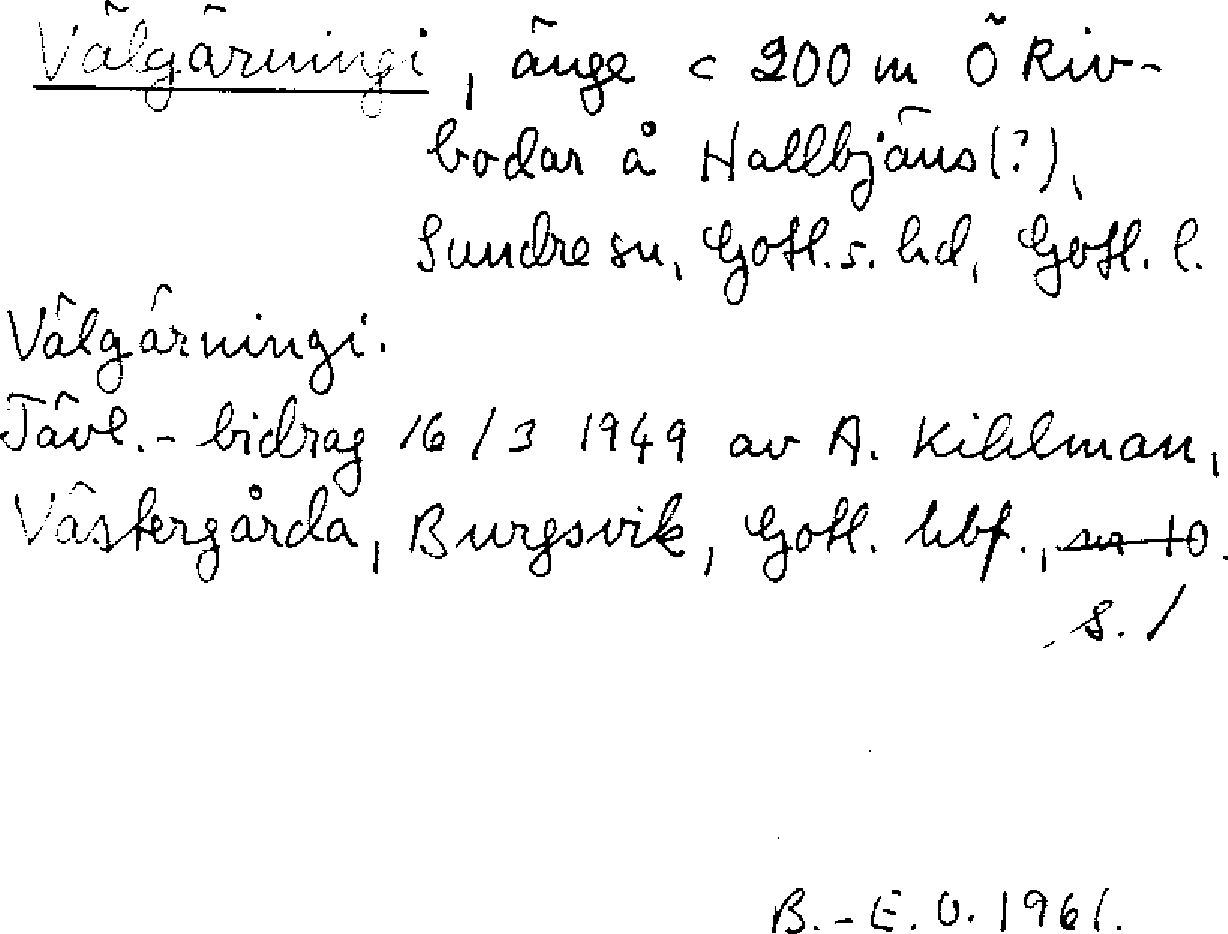 Välgärningi, änge c 200 m Ö Riv-
bodar å Hallbjäns(?),
Sundre sn, Gotl. s. hd, Gotl. l.
Välgärningi.
Tävl.-bidrag 16/3 1949 av A. Kihlman,
Västergårda, Burgsvik, Gotl. hbf., nr 10.
s. 1
B.-E. O. 1961.